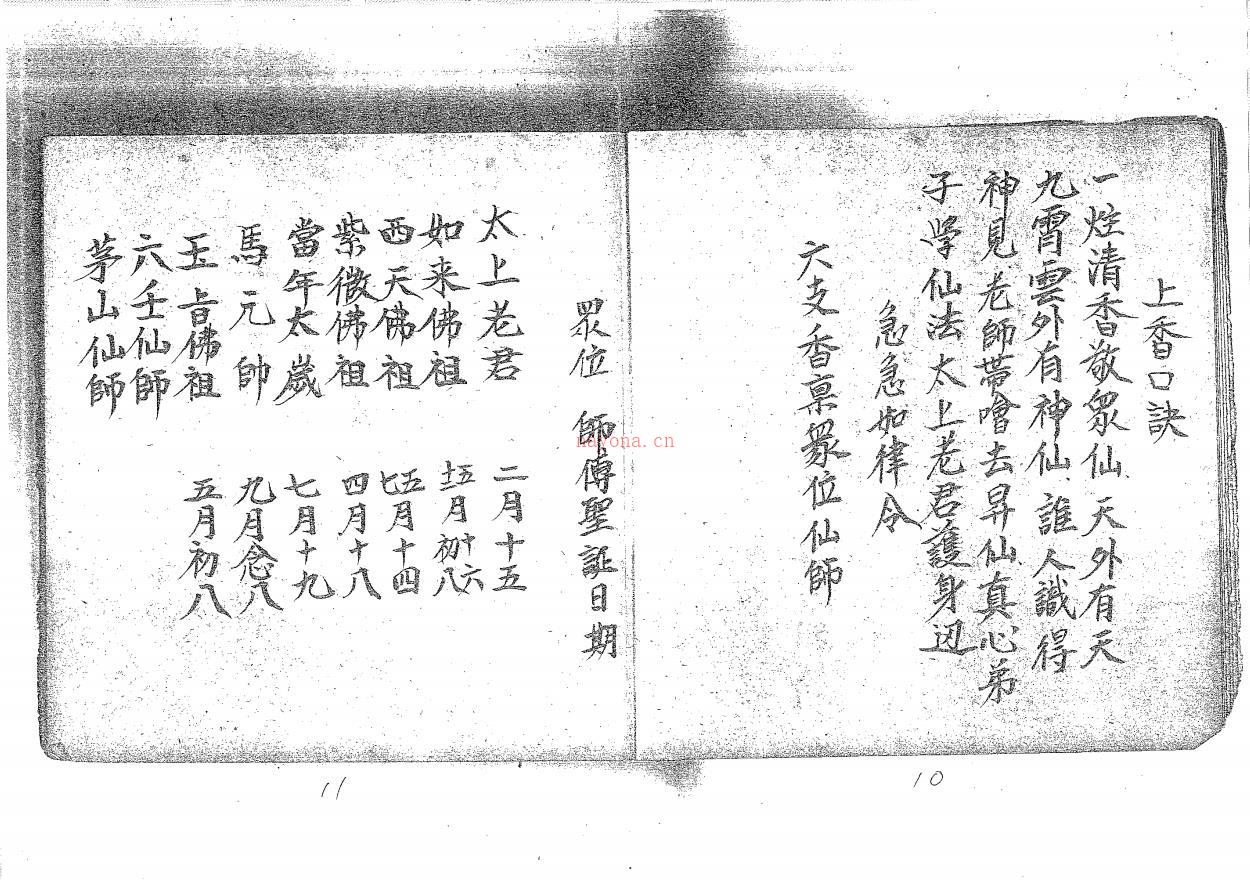 上香口訣
一炷清香敬眾仙天外有天
九霄雲外有神仙誰人識得
神見老師帶噲去昇仙真心弟
子學仙法太上老君護身边
急急如律令
六支香稟眾位仙師
10
眾位 師傅聖誔日期
太上老君 二月十五
如来佛祖 五月十六 十一月初八
西天佛祖 五月十四
紫微佛祖 四月十八
當年太歲 七月十九
馬元帥 九月念八
玉旨佛祖 五月初八
六壬仙師
茅山仙師
11
nayona.cn